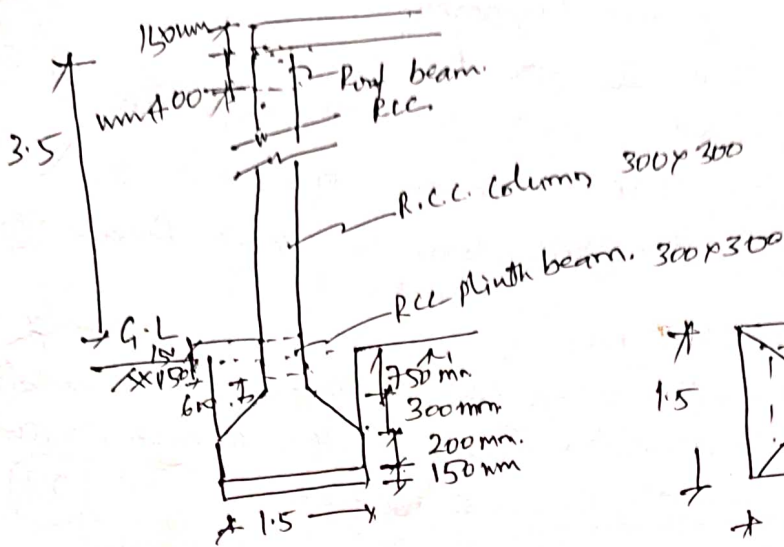 150mm
400
mm
Roof beam.
RCC.
3.5
R.C.C. Column 300x300
RCC plinth beam. 300x300
G.L
150
600
750 mm
300mm
200mm.
150mm
1.5
1.5